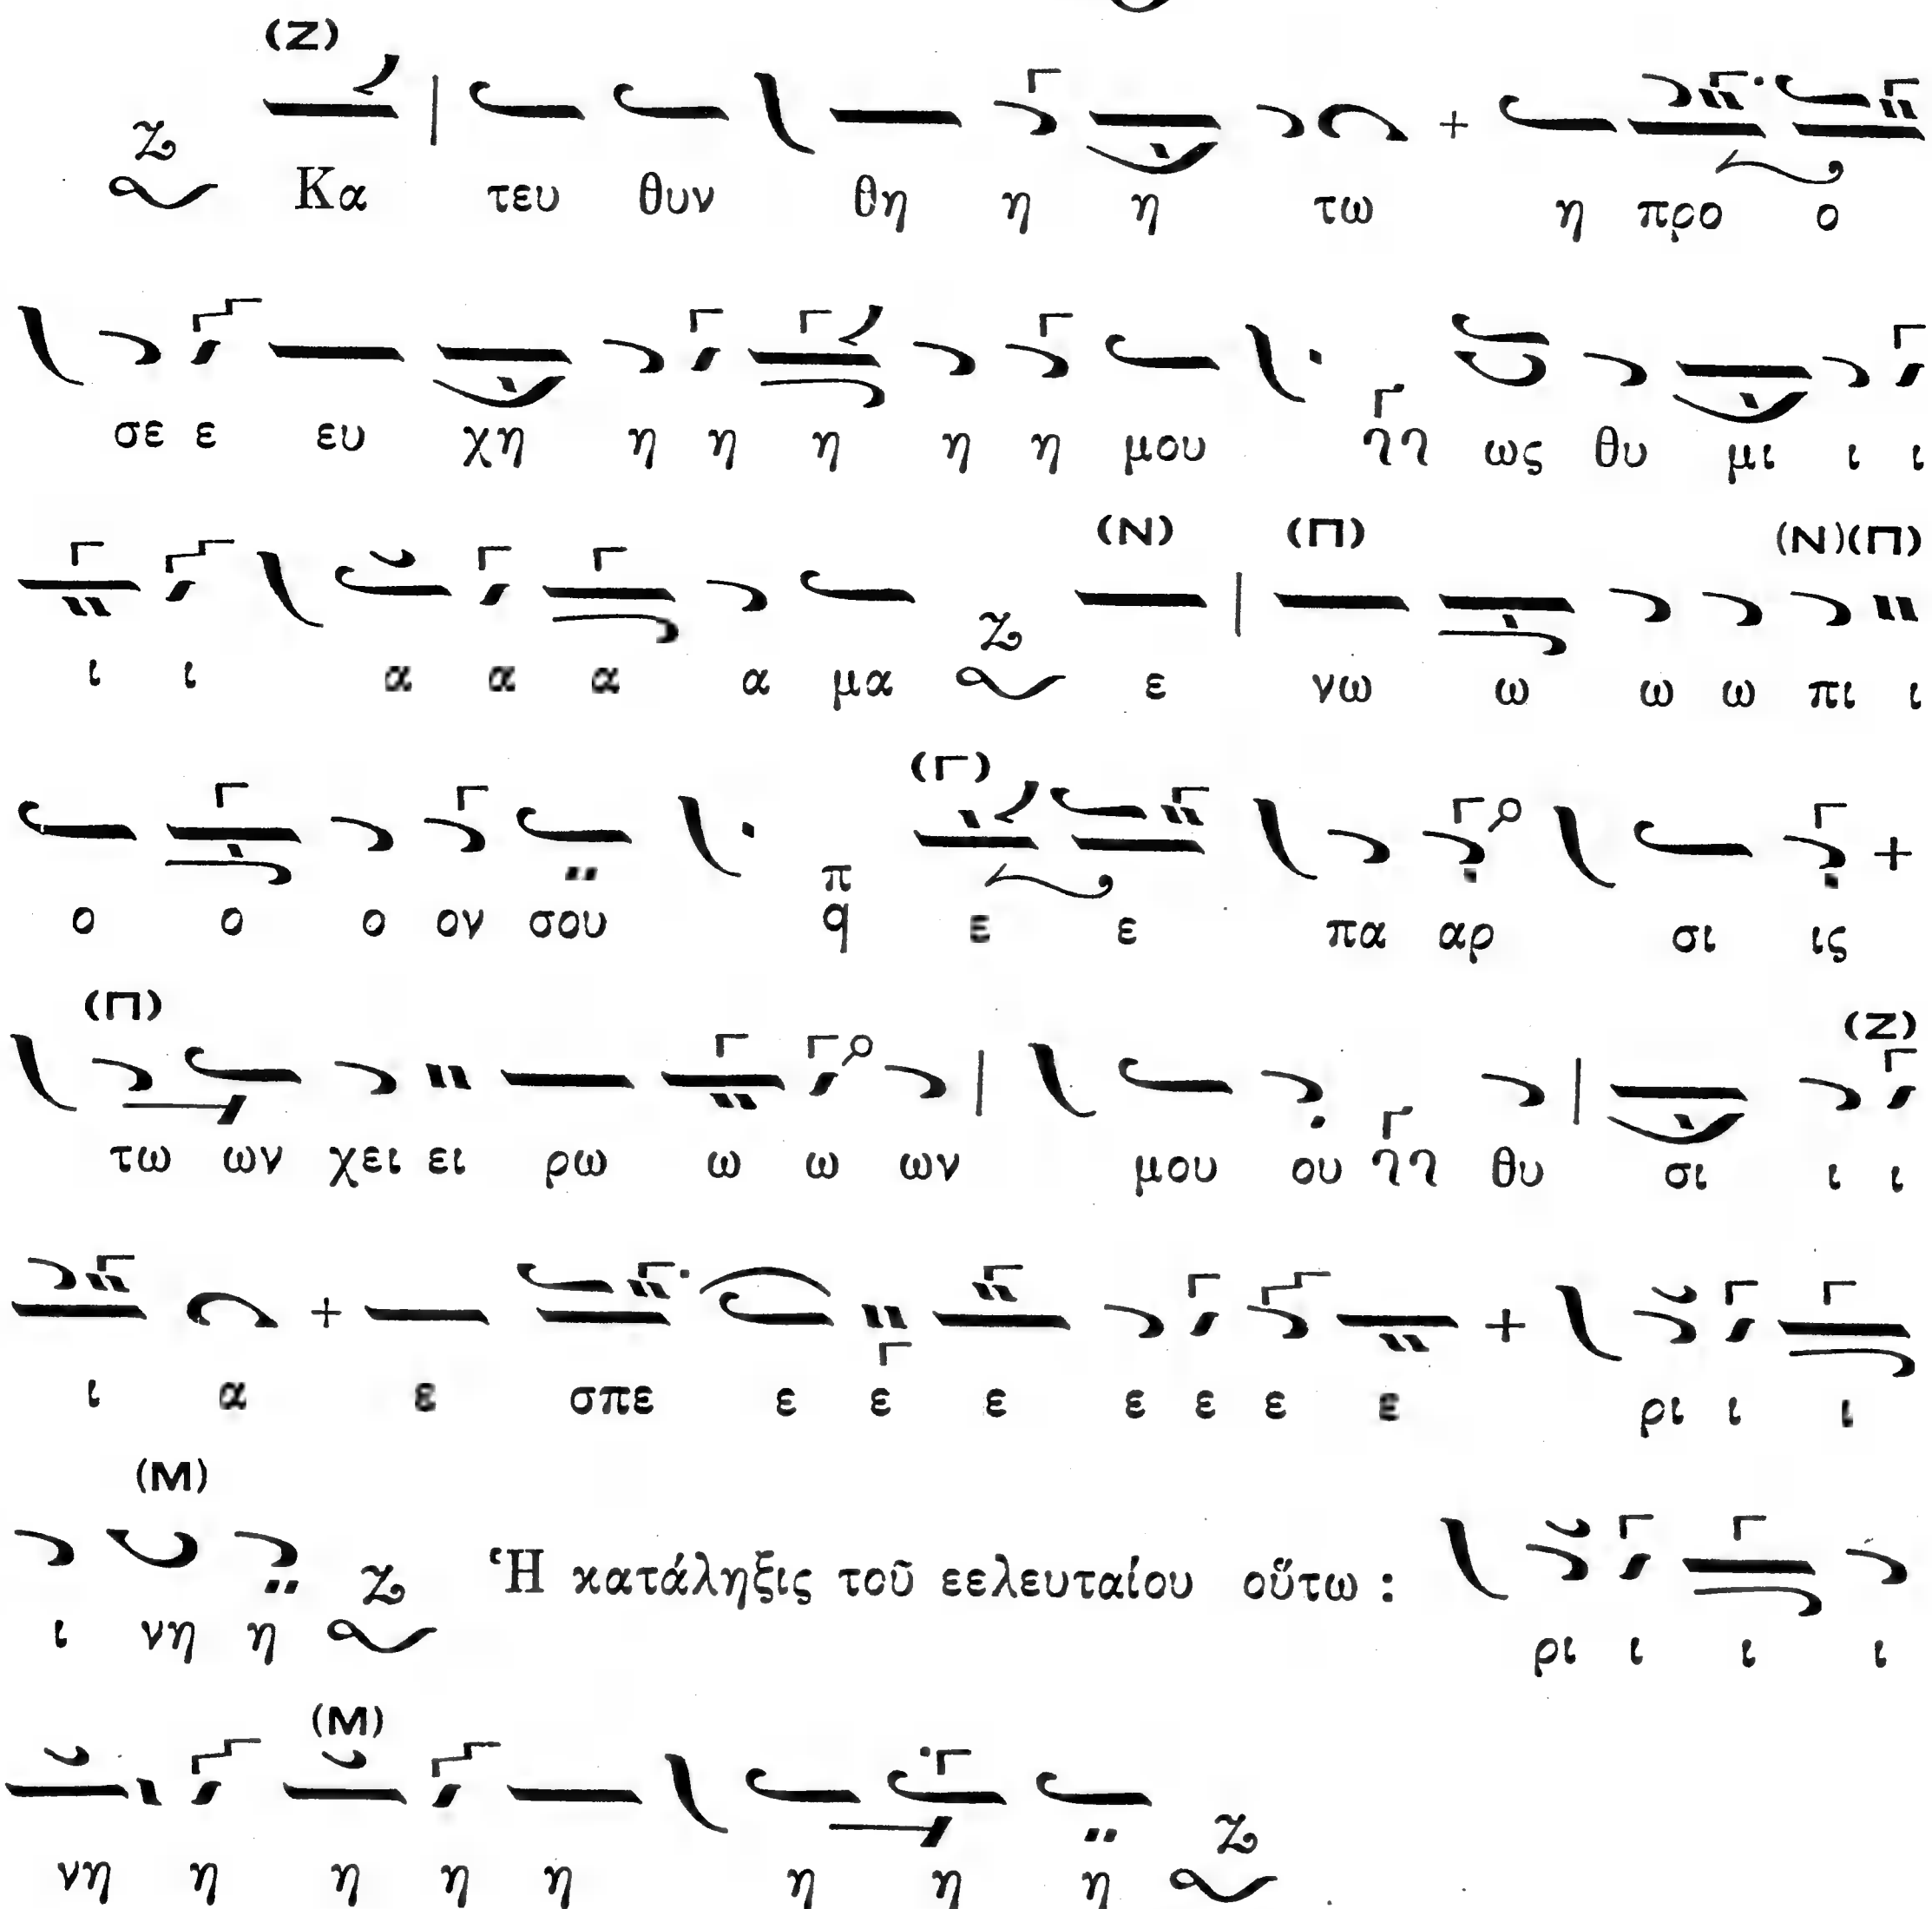 (Ζ)
Ζ Κα τευ θυν θη η η τω η προ ο
σε ε ευ χη η η η η η μου γγ ως θυ μι ι ι
(Ν) (Π) (Ν)(Π)
ι ι α α α α μα Ζ ε νω ω ω ω πι ι
(Γ)
ο ο ο ον σου π q ε ε πα αρ σι ις
(Π) (Ζ)
τω ων χει ει ρω ω ω ων μου ου γγ θυ σι ι ι
ι α ε σπε ε ε ε ε ε ε ε ρι ι ι
(Μ)
ι νη η Ζ Ἡ κατάληξις τοῦ εελευταίου οὕτω: ρι ι ι ι
(Μ)
νη η η η η η η η Ζ